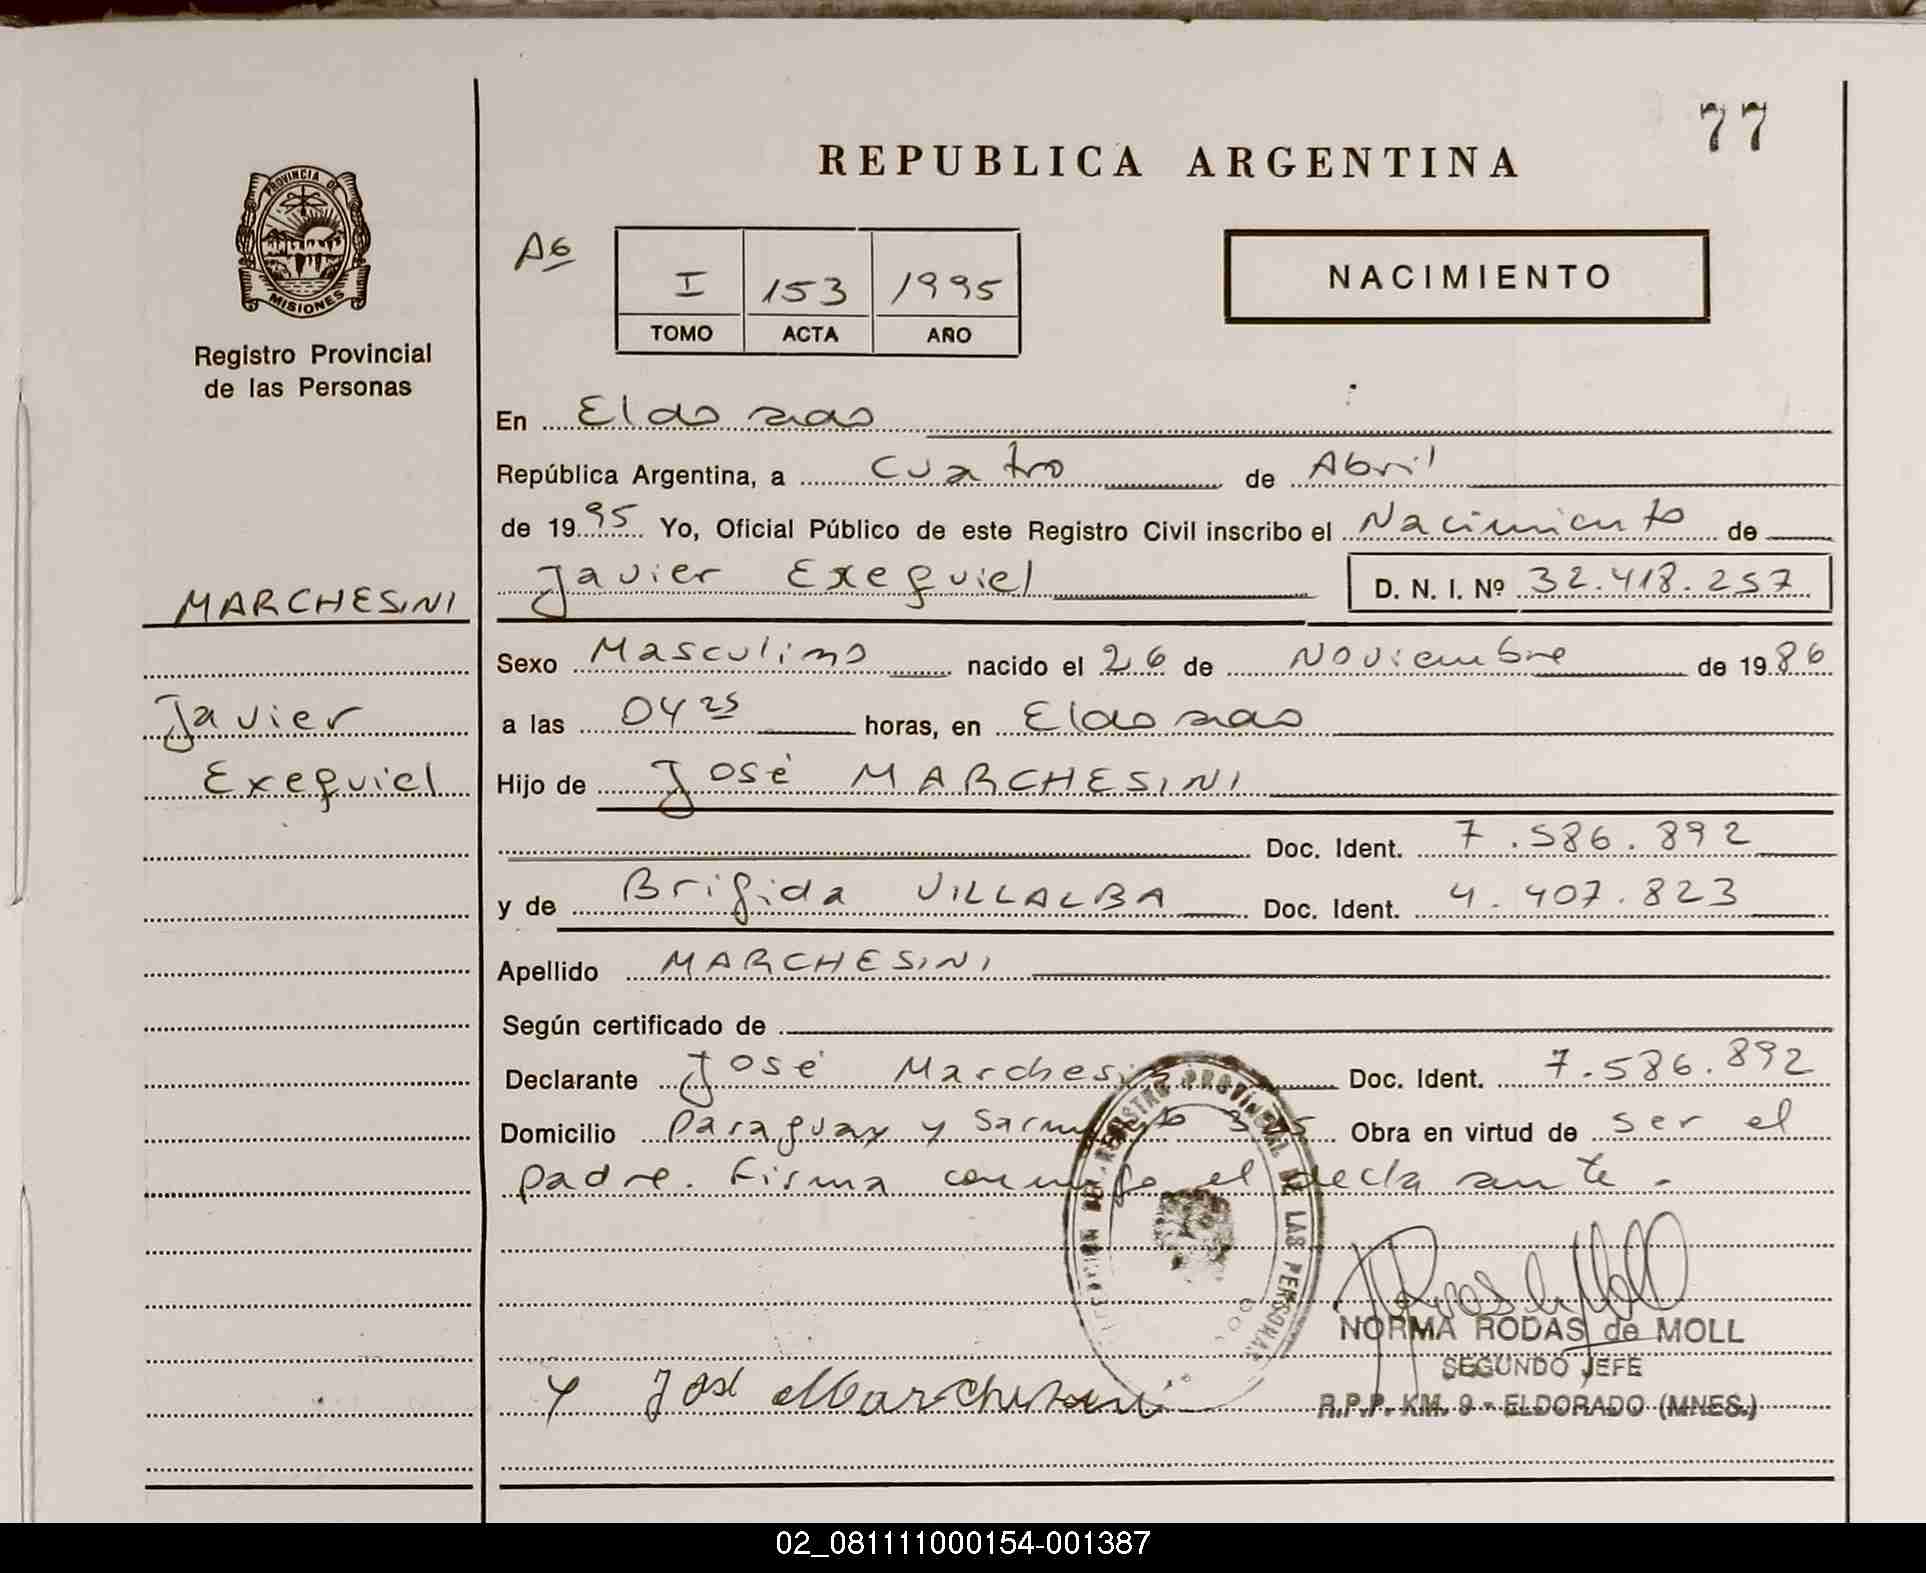 77
REPUBLICA ARGENTINA
PROVINCIA DE
MISIONES
Registro Provincial
de las Personas
A6
I 153 1995
TOMO ACTA AÑO
NACIMIENTO
En Eldorado
República Argentina, a cuatro de Abril
de 1995 Yo, Oficial Público de este Registro Civil inscribo el Nacimiento de
MARCHESINI
Javier Exequiel D. N. I. Nº 32.418.257
Sexo Masculino nacido el 26 de Noviembre de 1986
Javier
a las 04 25 horas, en Eldorado
Exequiel
Hijo de José MARCHESINI
Doc. Ident. 7.586.892
y de Brigida VILLALBA Doc. Ident. 4.407.823
Apellido MARCHESINI
Según certificado de
Declarante José Marchesini Doc. Ident. 7.586.892
Domicilio Paraguay y Sarmiento Obra en virtud de ser el
padre. Firma conmigo el declarante.
REGISTRO PROVINCIAL DE LAS PERSONAS
NORMA RODAS de MOLL
SEGUNDO JEFE
R.P.P. KM. 9 - ELDORADO (MNES.)
José Marchesini
02_081111000154-001387